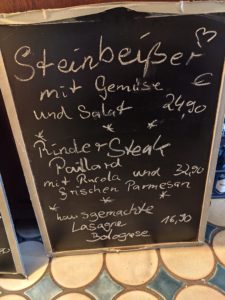 Steinbeißer
mit Gemüse €
und Salat 24,90
Rinder Steak
Paillard
mit Rucola und 32,90
frischen Parmesan
hausgemachte
Lasagne 16,90
Bolognese